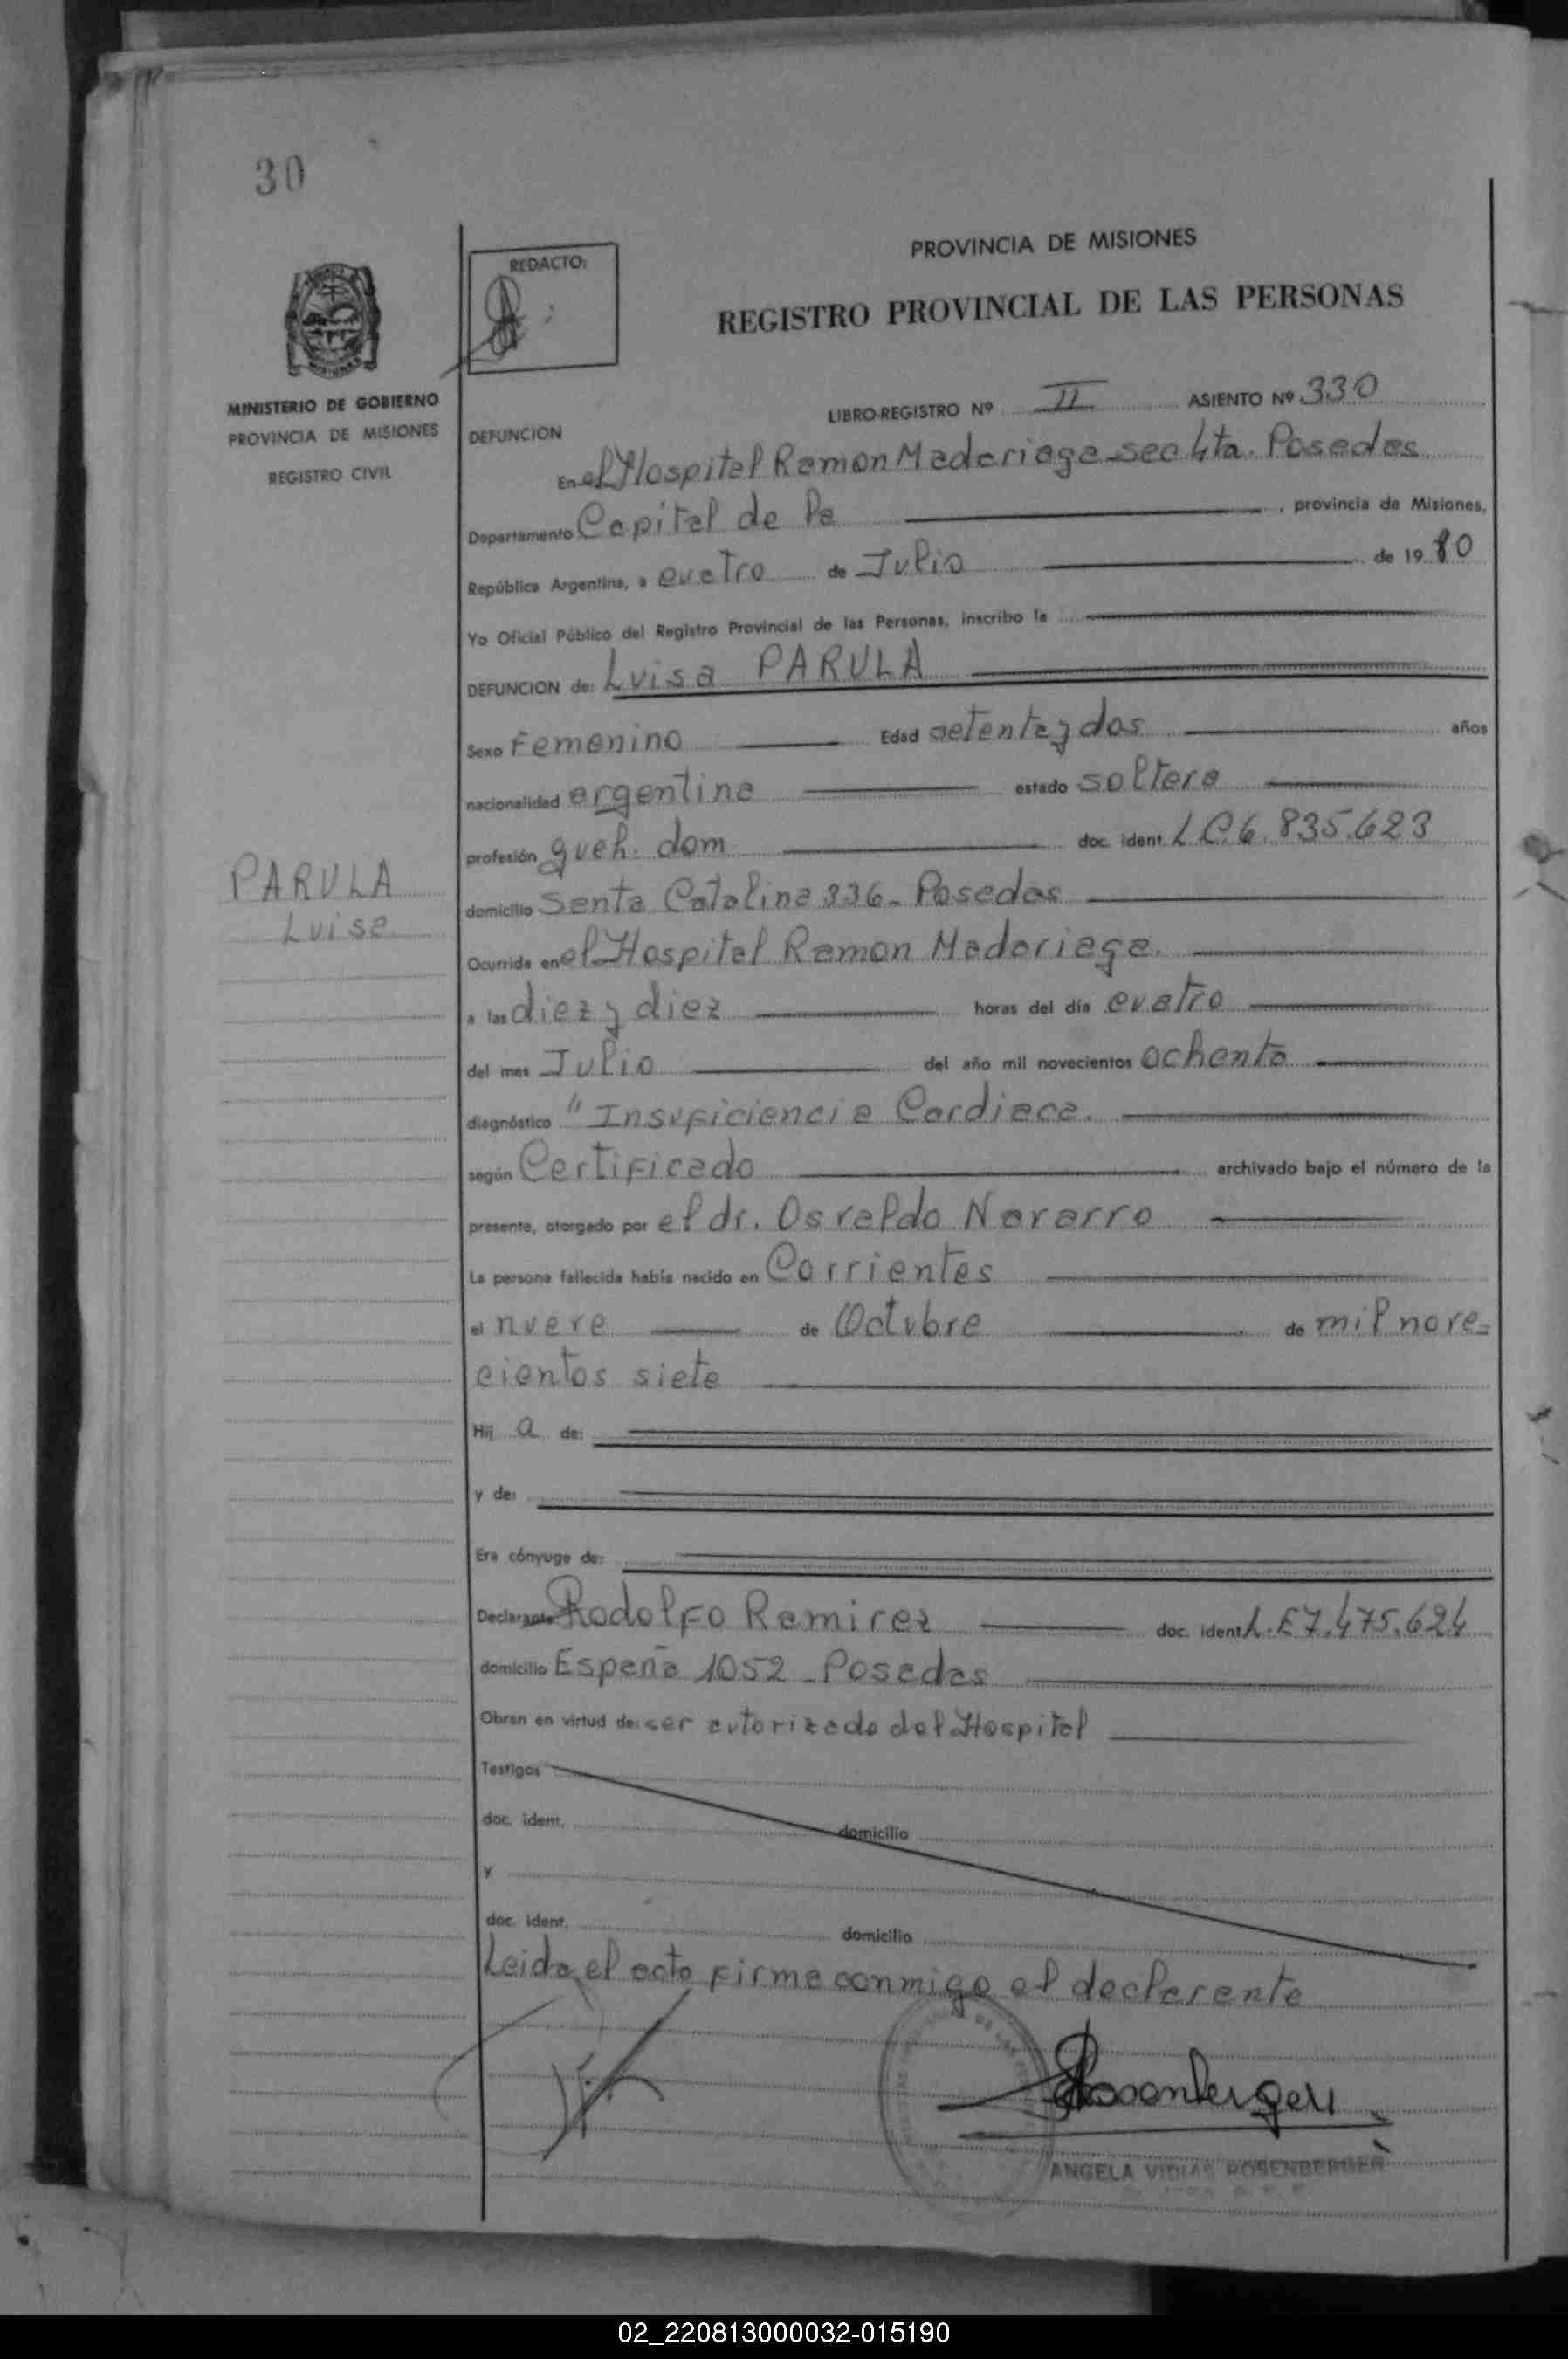 30
REDACTO:
PROVINCIA DE MISIONES
REGISTRO PROVINCIAL DE LAS PERSONAS
MINISTERIO DE GOBIERNO
PROVINCIA DE MISIONES
REGISTRO CIVIL
LIBRO-REGISTRO Nº II ASIENTO Nº 330
DEFUNCION
En el Hospital Ramon Madariaga sec 4ta. Posadas
Departamento Capital de la , provincia de Misiones,
República Argentina, a cuatro de Julio de 19 80
Yo Oficial Público del Registro Provincial de las Personas, inscribo la
DEFUNCION de: Luisa PARULA
Sexo Femenino Edad setenta y dos años
nacionalidad argentina estado soltera
profesión queh. dom doc. ident. L.C.6.835.623
PARULA
Luisa
domicilio Santa Catalina 336 - Posadas
Ocurrida en el Hospital Ramon Madariaga.
a las diez y diez horas del día cuatro
del mes Julio del año mil novecientos ochenta
diagnóstico "Insuficiencia Cardiaca.
según Certificado archivado bajo el número de la
presente, otorgado por el dr. Osvaldo Navarro
La persona fallecida había nacido en Corrientes
el nueve de Octubre de mil nove=
cientos siete
Hij a de:
y de:
Era cónyuge de:
Declarante Rodolfo Ramirez doc. ident L.E 7.475.624
domicilio España 1052 - Posadas
Obran en virtud de: ser autorizado del Hospital
Testigos
doc. ident. domicilio
y
doc. ident. domicilio
Leida el acta firma conmigo el declarante
Rosenberger
ANGELA ROSENBERGER
02_220813000032-015190